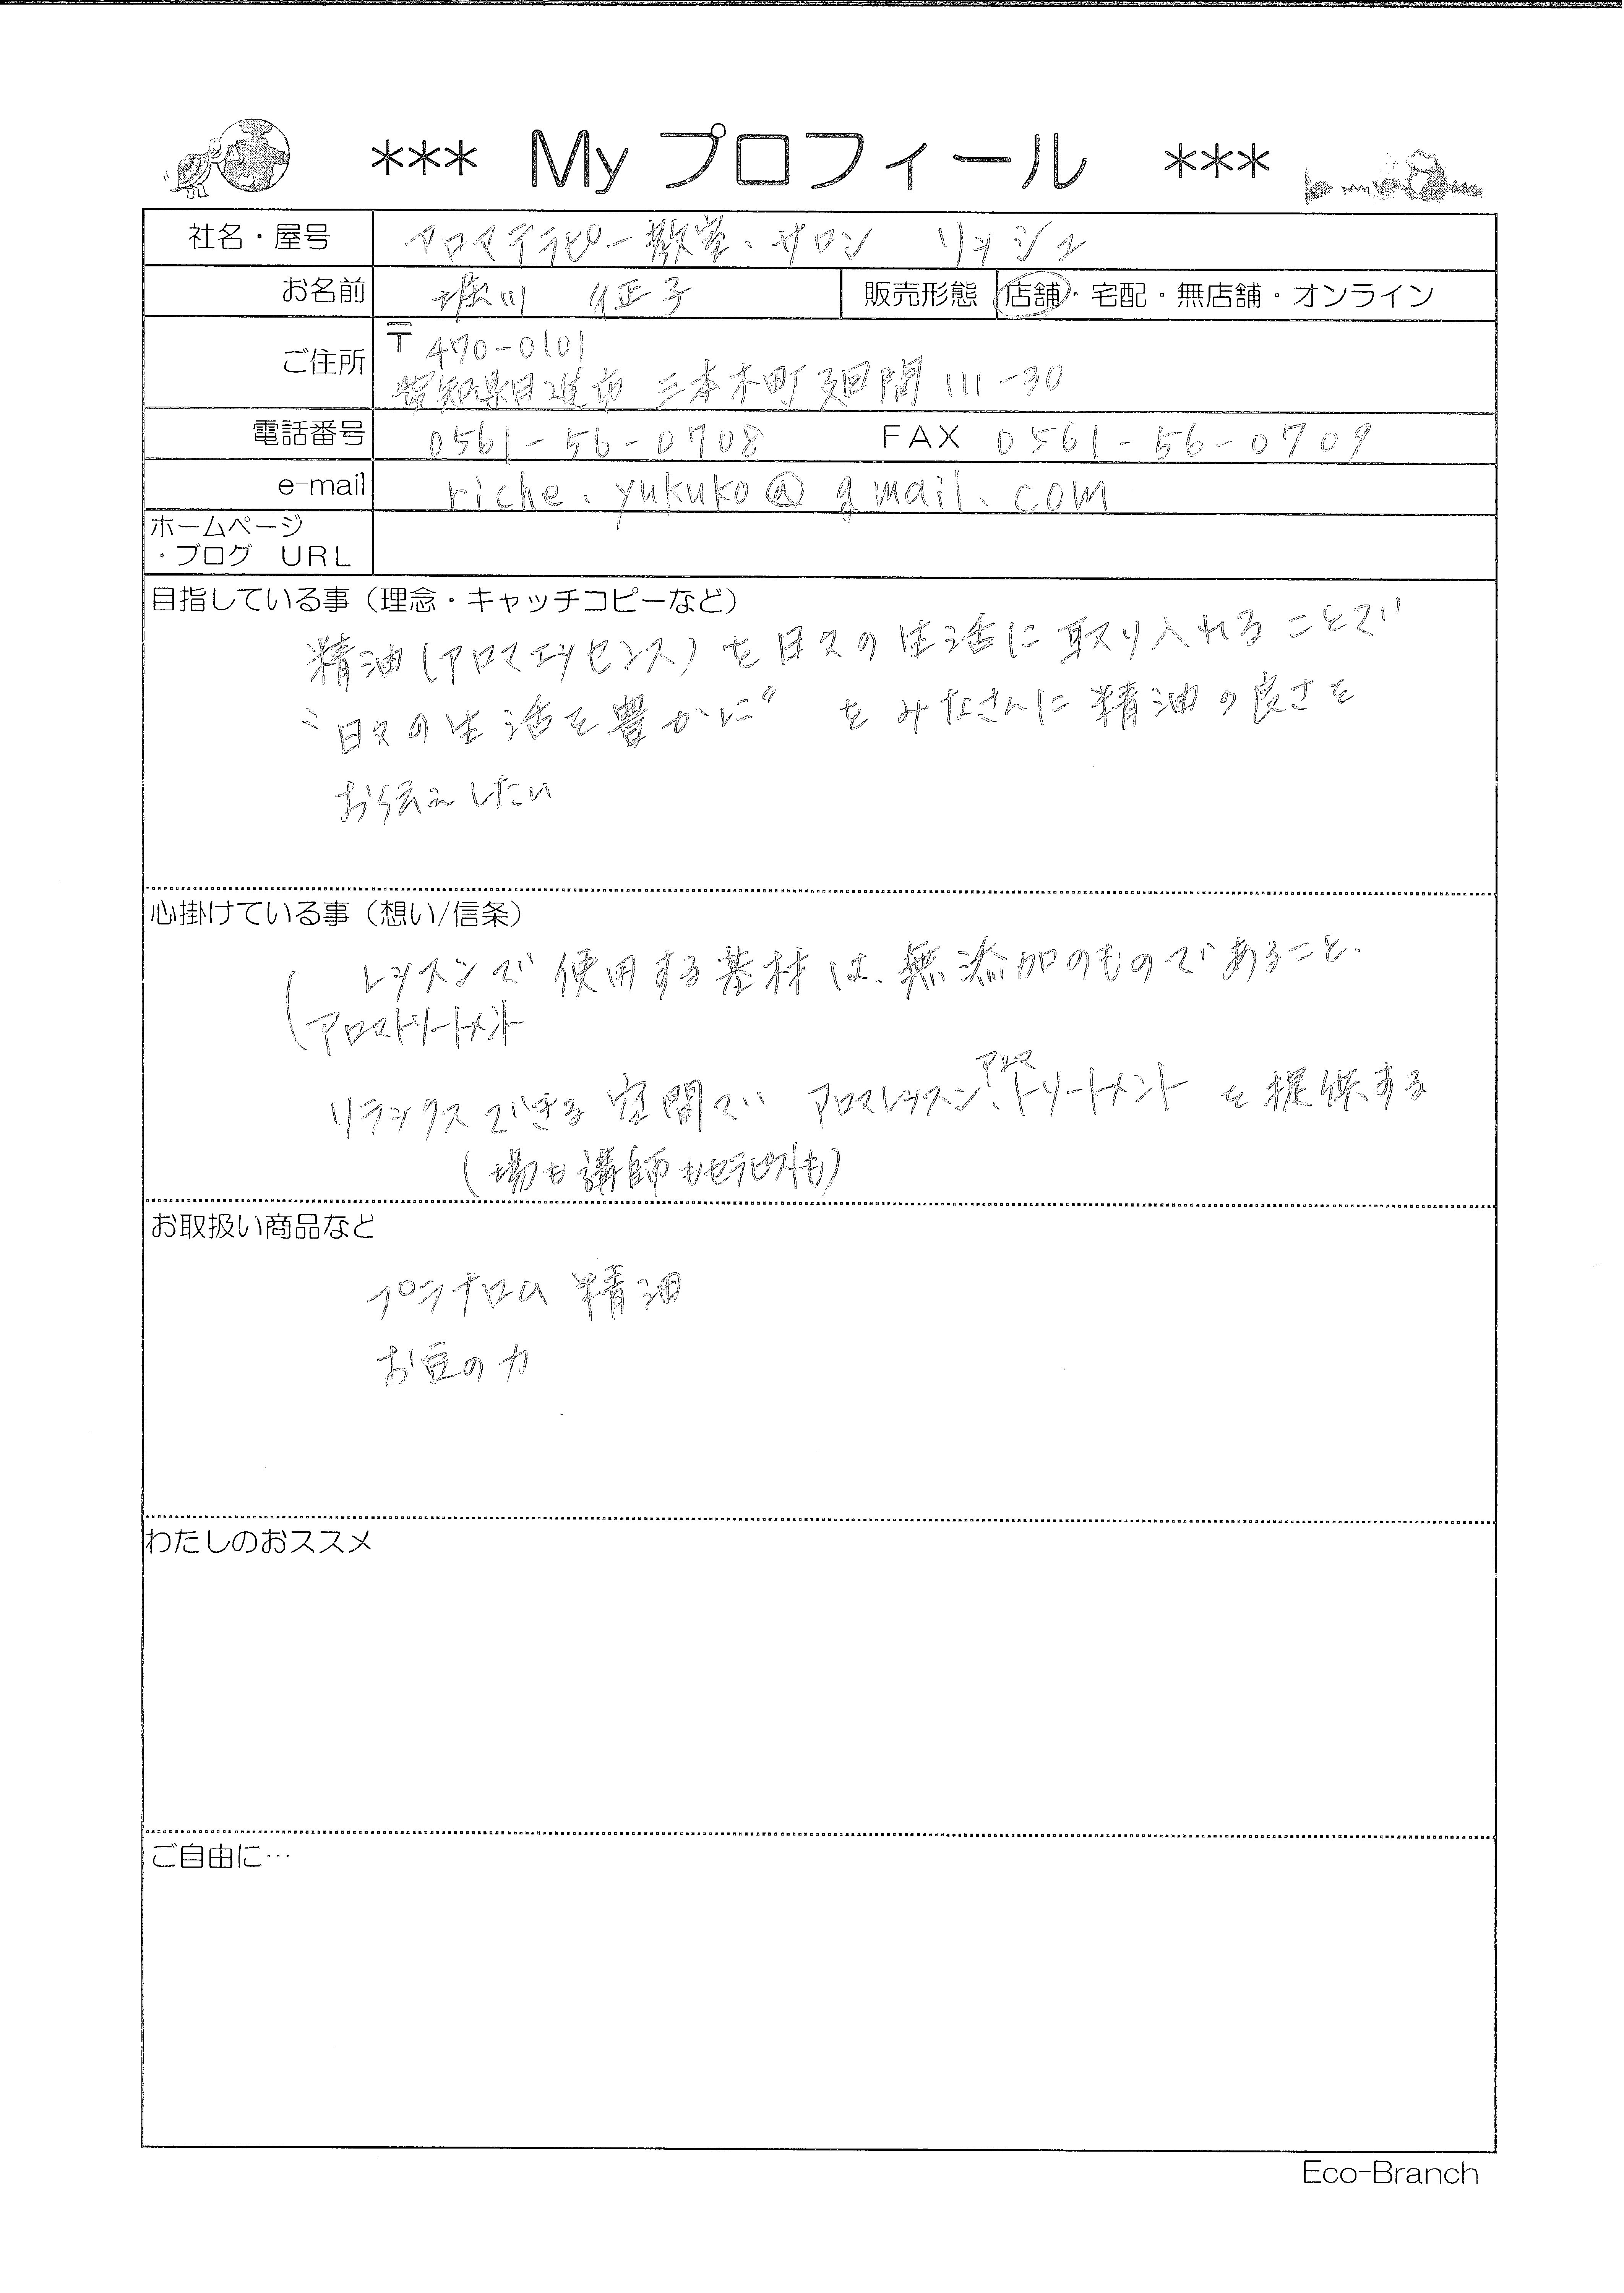 *** My プロフィール ***
社名・屋号 アロマテラピー教室・サロン リッシュ
お名前 堀川 征子 販売形態 店舗・宅配・無店舗・オンライン
ご住所 〒470-0101
愛知県日進市 三本木町廻間111-30
電話番号 0561-56-0708 FAX 0561-56-0709
e-mail riche.yukuko@gmail.com
ホームページ
・ブログ URL
目指している事(理念・キャッチコピーなど)
精油(アロマエッセンス)を日々の生活に取り入れることで
"日々の生活を豊かに" を みなさんに精油の良さを
お伝えしたい
心掛けている事(想い/信条)
レッスンで使用する基材は、無添加のものであること.
(アロマトリートメント
アロマ
リラックスできる空間で アロマレッスン、トリートメント を提供する
(場も講師もセラピストも)
お取扱い商品など
プラナロム 精油
お豆の力
わたしのおススメ
ご自由に…
Eco-Branch